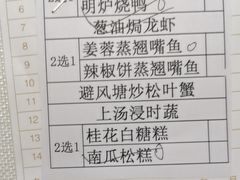 明炉烧鸭
葱油焗龙虾
6
7 2选1 姜蓉蒸翘嘴鱼
8 辣椒饼蒸翘嘴鱼
9 避风塘炒松叶蟹
10 上汤浸时蔬
11
12 2选1 桂花白糖糕
13 南瓜松糕
14